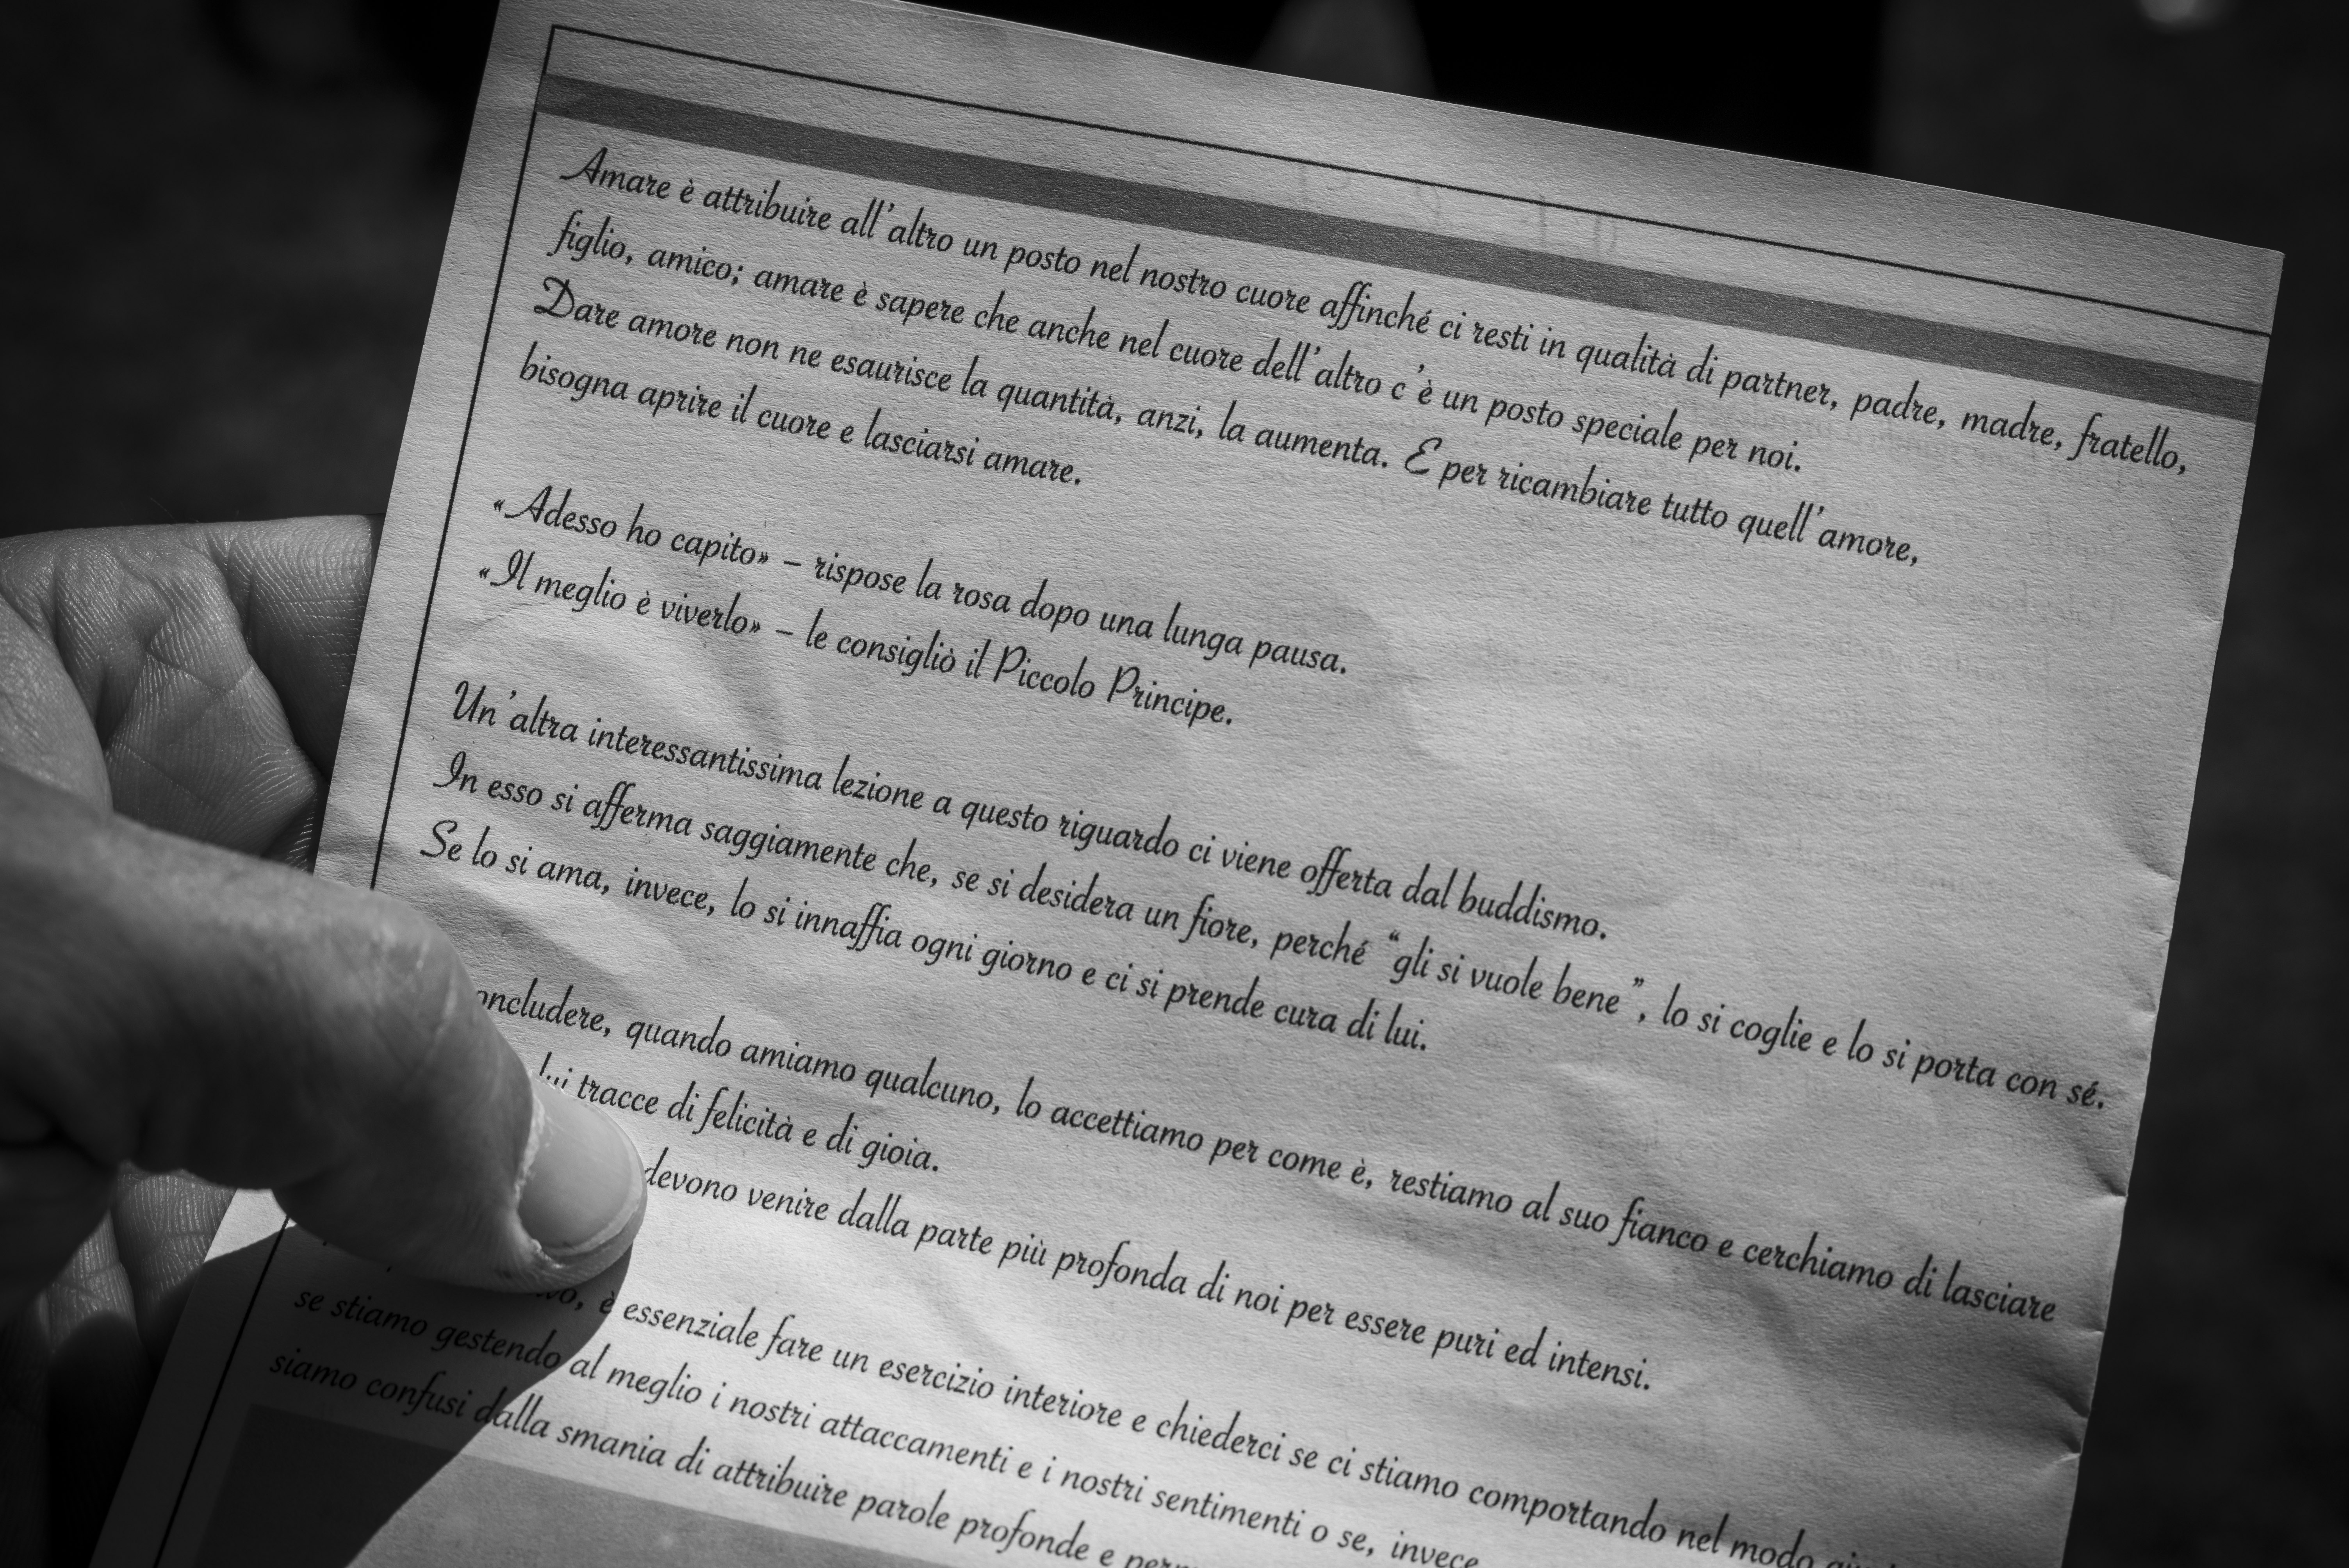 Amare è attribuire all'altro un posto nel nostro cuore affinché ci resti in qualità di partner, padre, madre, fratello,
figlio, amico; amare è sapere che anche nel cuore dell'altro c'è un posto speciale per noi.
Dare amore non ne esaurisce la quantità, anzi, la aumenta. E per ricambiare tutto quell'amore,
bisogna aprire il cuore e lasciarsi amare.
«Adesso ho capito» – rispose la rosa dopo una lunga pausa.
«Il meglio è viverlo» – le consigliò il Piccolo Principe.
Un'altra interessantissima lezione a questo riguardo ci viene offerta dal buddismo.
In esso si afferma saggiamente che, se si desidera un fiore, perché “gli si vuole bene”, lo si coglie e lo si porta con sé.
Se lo si ama, invece, lo si innaffia ogni giorno e ci si prende cura di lui.
oncludere, quando amiamo qualcuno, lo accettiamo per come è, restiamo al suo fianco e cerchiamo di lasciare
lui tracce di felicità e di gioia.
devono venire dalla parte più profonda di noi per essere puri ed intensi.
è essenziale fare un esercizio interiore e chiederci se ci stiamo comportando nel modo
se stiamo gestendo al meglio i nostri attaccamenti e i nostri sentimenti o se, invece
siamo confusi dalla smania di attribuire parole profonde e